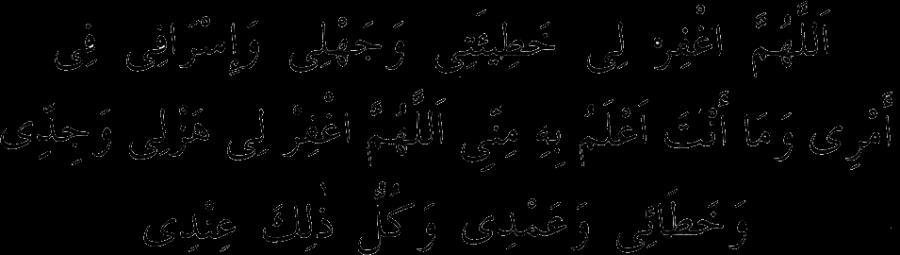 اَللَّهُمَّ اغْفِرْ لِى خَطِيئَتِى وَجَهْلِى وَإِسْرَافِى فِى
أَمْرِى وَمَا أَنْتَ اَعْلَمُ بِهِ مِنِّي اَللَّهُمَّ اغْفِرْ لِى هَزْلِى وَجِدِّى
وَخَطَائِي وَعَمْدِى وَكُلُّ ذٰلِكَ عِنْدِى